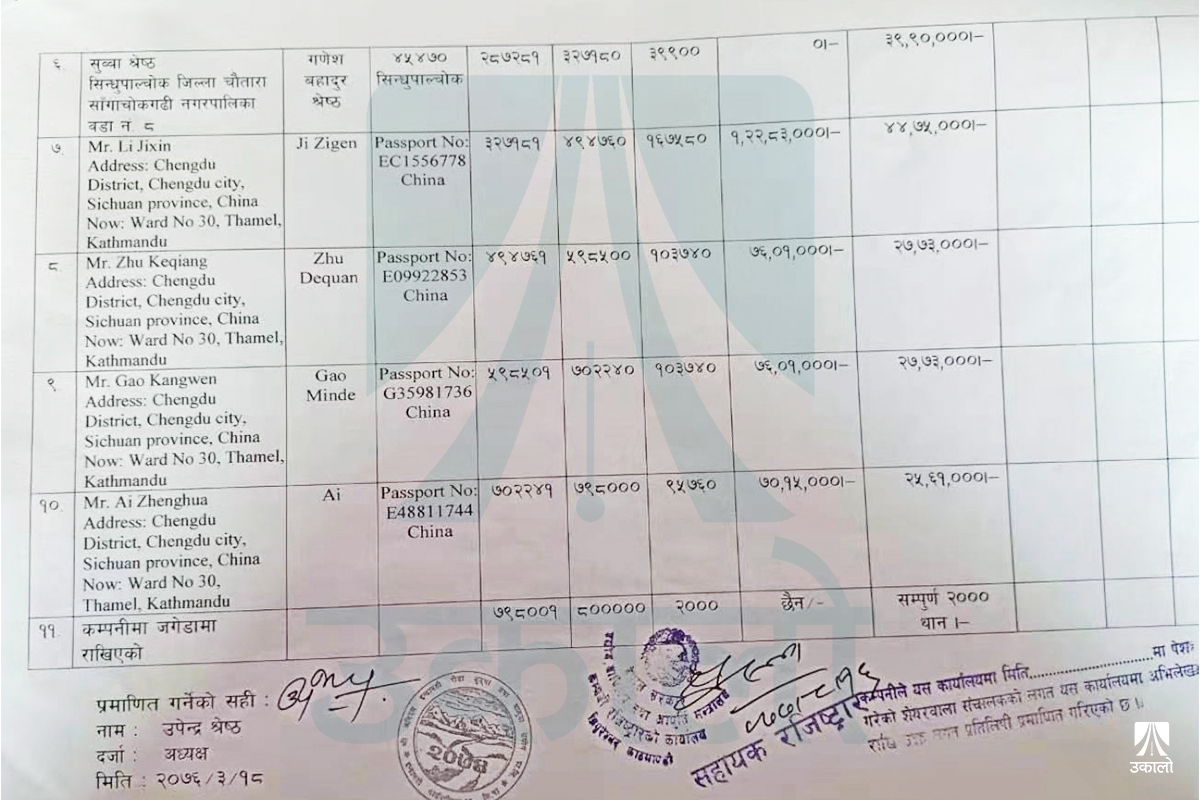 ६. सुब्बा श्रेष्ठ
सिन्धुपाल्चोक जिल्ला चौतारा
साँगाचोकगढी नगरपालिका
वडा नं. ८
गणेश
बहादुर
श्रेष्ठ
४५४७०
सिन्धुपाल्चोक
२८७२८१ ३२७१८० ३९९०० ०।– ३९,९०,०००।–
७. Mr. Li Jixin
Address: Chengdu
District, Chengdu city,
Sichuan province, China
Now: Ward No 30, Thamel,
Kathmandu
Ji Zigen
Passport No:
EC1556778
China
३२७१८१ ४९४७६० १६७५८० १,२२,८३,०००।– ४४,७५,०००।–
८. Mr. Zhu Keqiang
Address: Chengdu
District, Chengdu city,
Sichuan province, China
Now: Ward No 30, Thamel,
Kathmandu
Zhu
Dequan
Passport No:
E09922853
China
४९४७६१ ५९८५०० १०३७४० ७६,०१,०००।– २७,७३,०००।–
९. Mr. Gao Kangwen
Address: Chengdu
District, Chengdu city,
Sichuan province, China
Now: Ward No 30, Thamel,
Kathmandu
Gao
Minde
Passport No:
G35981736
China
५९८५०१ ७०२२४० १०३७४० ७६,०१,०००।– २७,७३,०००।–
१०. Mr. Ai Zhenghua
Address: Chengdu
District, Chengdu city,
Sichuan province, China
Now: Ward No 30,
Thamel, Kathmandu
Ai
Passport No:
E48811744
China
७०२२४१ ७९८००० ९५७६० ७०,१५,०००।– २५,६१,०००।–
११. कम्पनीमा जगेडामा
राखिएको
७९८००१ ८००००० २००० छैन/– सम्पुर्ण २०००
थान ।–
प्रमाणित गर्नेको सही :
नाम : उपेन्द्र श्रेष्ठ
दर्जा : अध्यक्ष
मिति : २०७६/३/१८
२०५४
कम्पनी रजिष्ट्रारको कार्यालय
त्रिपुरेश्वर काठमाण्डौ
सहायक रजिष्ट्रार
कम्पनीले यस कार्यालयमा मिति.............................मा पेश
गरेको शेयरवाला संचालकको लगत यस कार्यालयमा अभिलेख
राखि उक्त लगत प्रतिलिपी प्रमाणित गरिएको छ ।
उकालो
उकालो